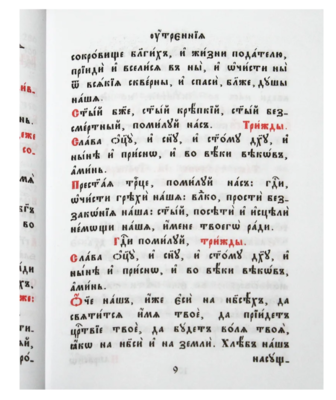 оу҆́трєннїѧ
сокро́вище бл҃ги́хъ, и҆ жи́зни пода́телю,
прїидѝ и҆ всели́сѧ въ ны̀, и҆ ѡ҆чи́сти ны̀
ѿ всѧ́кїѧ скве́рны, и҆ спасѝ, бл҃же, дꙋ́шы
на́шѧ.
Ст҃ы́й бж҃е, ст҃ы́й крѣ́пкїй, ст҃ы́й без-
сме́ртный, поми́лꙋй на́съ. Три́жды.
Сла́ва ѻ҆ц҃ꙋ̀, и҆ сн҃ꙋ, и҆ ст҃о́мꙋ дх҃ꙋ, и҆
ны́нѣ и҆ при́снѡ, и҆ во вѣ́ки вѣкѡ́въ,
а҆ми́нь.
Прест҃а́ѧ трⷪ҇це, поми́лꙋй на́съ: гдⷭ҇и,
ѡ҆чи́сти грѣхѝ на́шѧ: вл҃ко, простѝ без-
закѡ́нїѧ на́ша: ст҃ы́й, посѣтѝ и҆ и҆сцѣлѝ
не́мѡщи на́шѧ, и҆́мене твоегѡ̀ ра́ди.
Гдⷭ҇и поми́лꙋй, три́жды.
Сла́ва ѻ҆ц҃ꙋ̀, и҆ сн҃ꙋ, и҆ ст҃о́мꙋ дх҃ꙋ, и҆
ны́нѣ и҆ при́снѡ, и҆ во вѣ́ки вѣкѡ́въ,
а҆ми́нь.
Ѻ҆́ч҃е на́шъ, и҆́же є҆сѝ на нб҃сѣ́хъ, да
свѧти́тсѧ и҆́мѧ твоѐ, да прїи́детъ
црⷭ҇твїе твоѐ, да бꙋ́детъ во́лѧ твоѧ̀,
ꙗ҆́кѡ на нб҃сѝ и҆ на землѝ. Хлѣ́бъ на́шъ
насꙋ́щ-
9